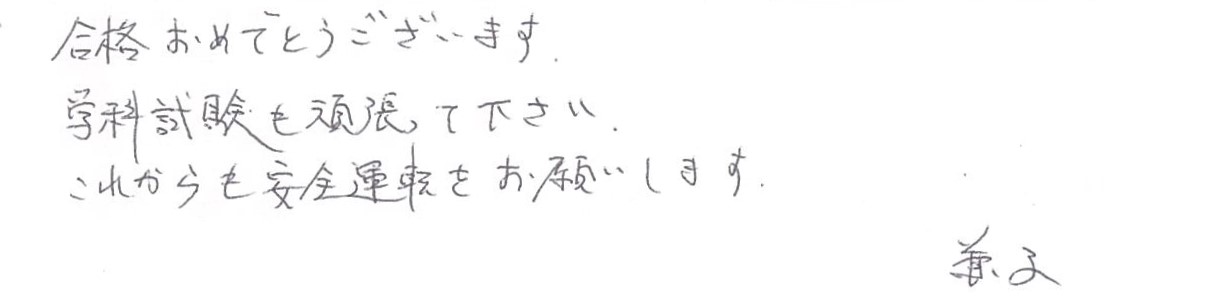 合格おめでとうございます.
学科試験も頑張って下さい.
これからも安全運転をお願いします.